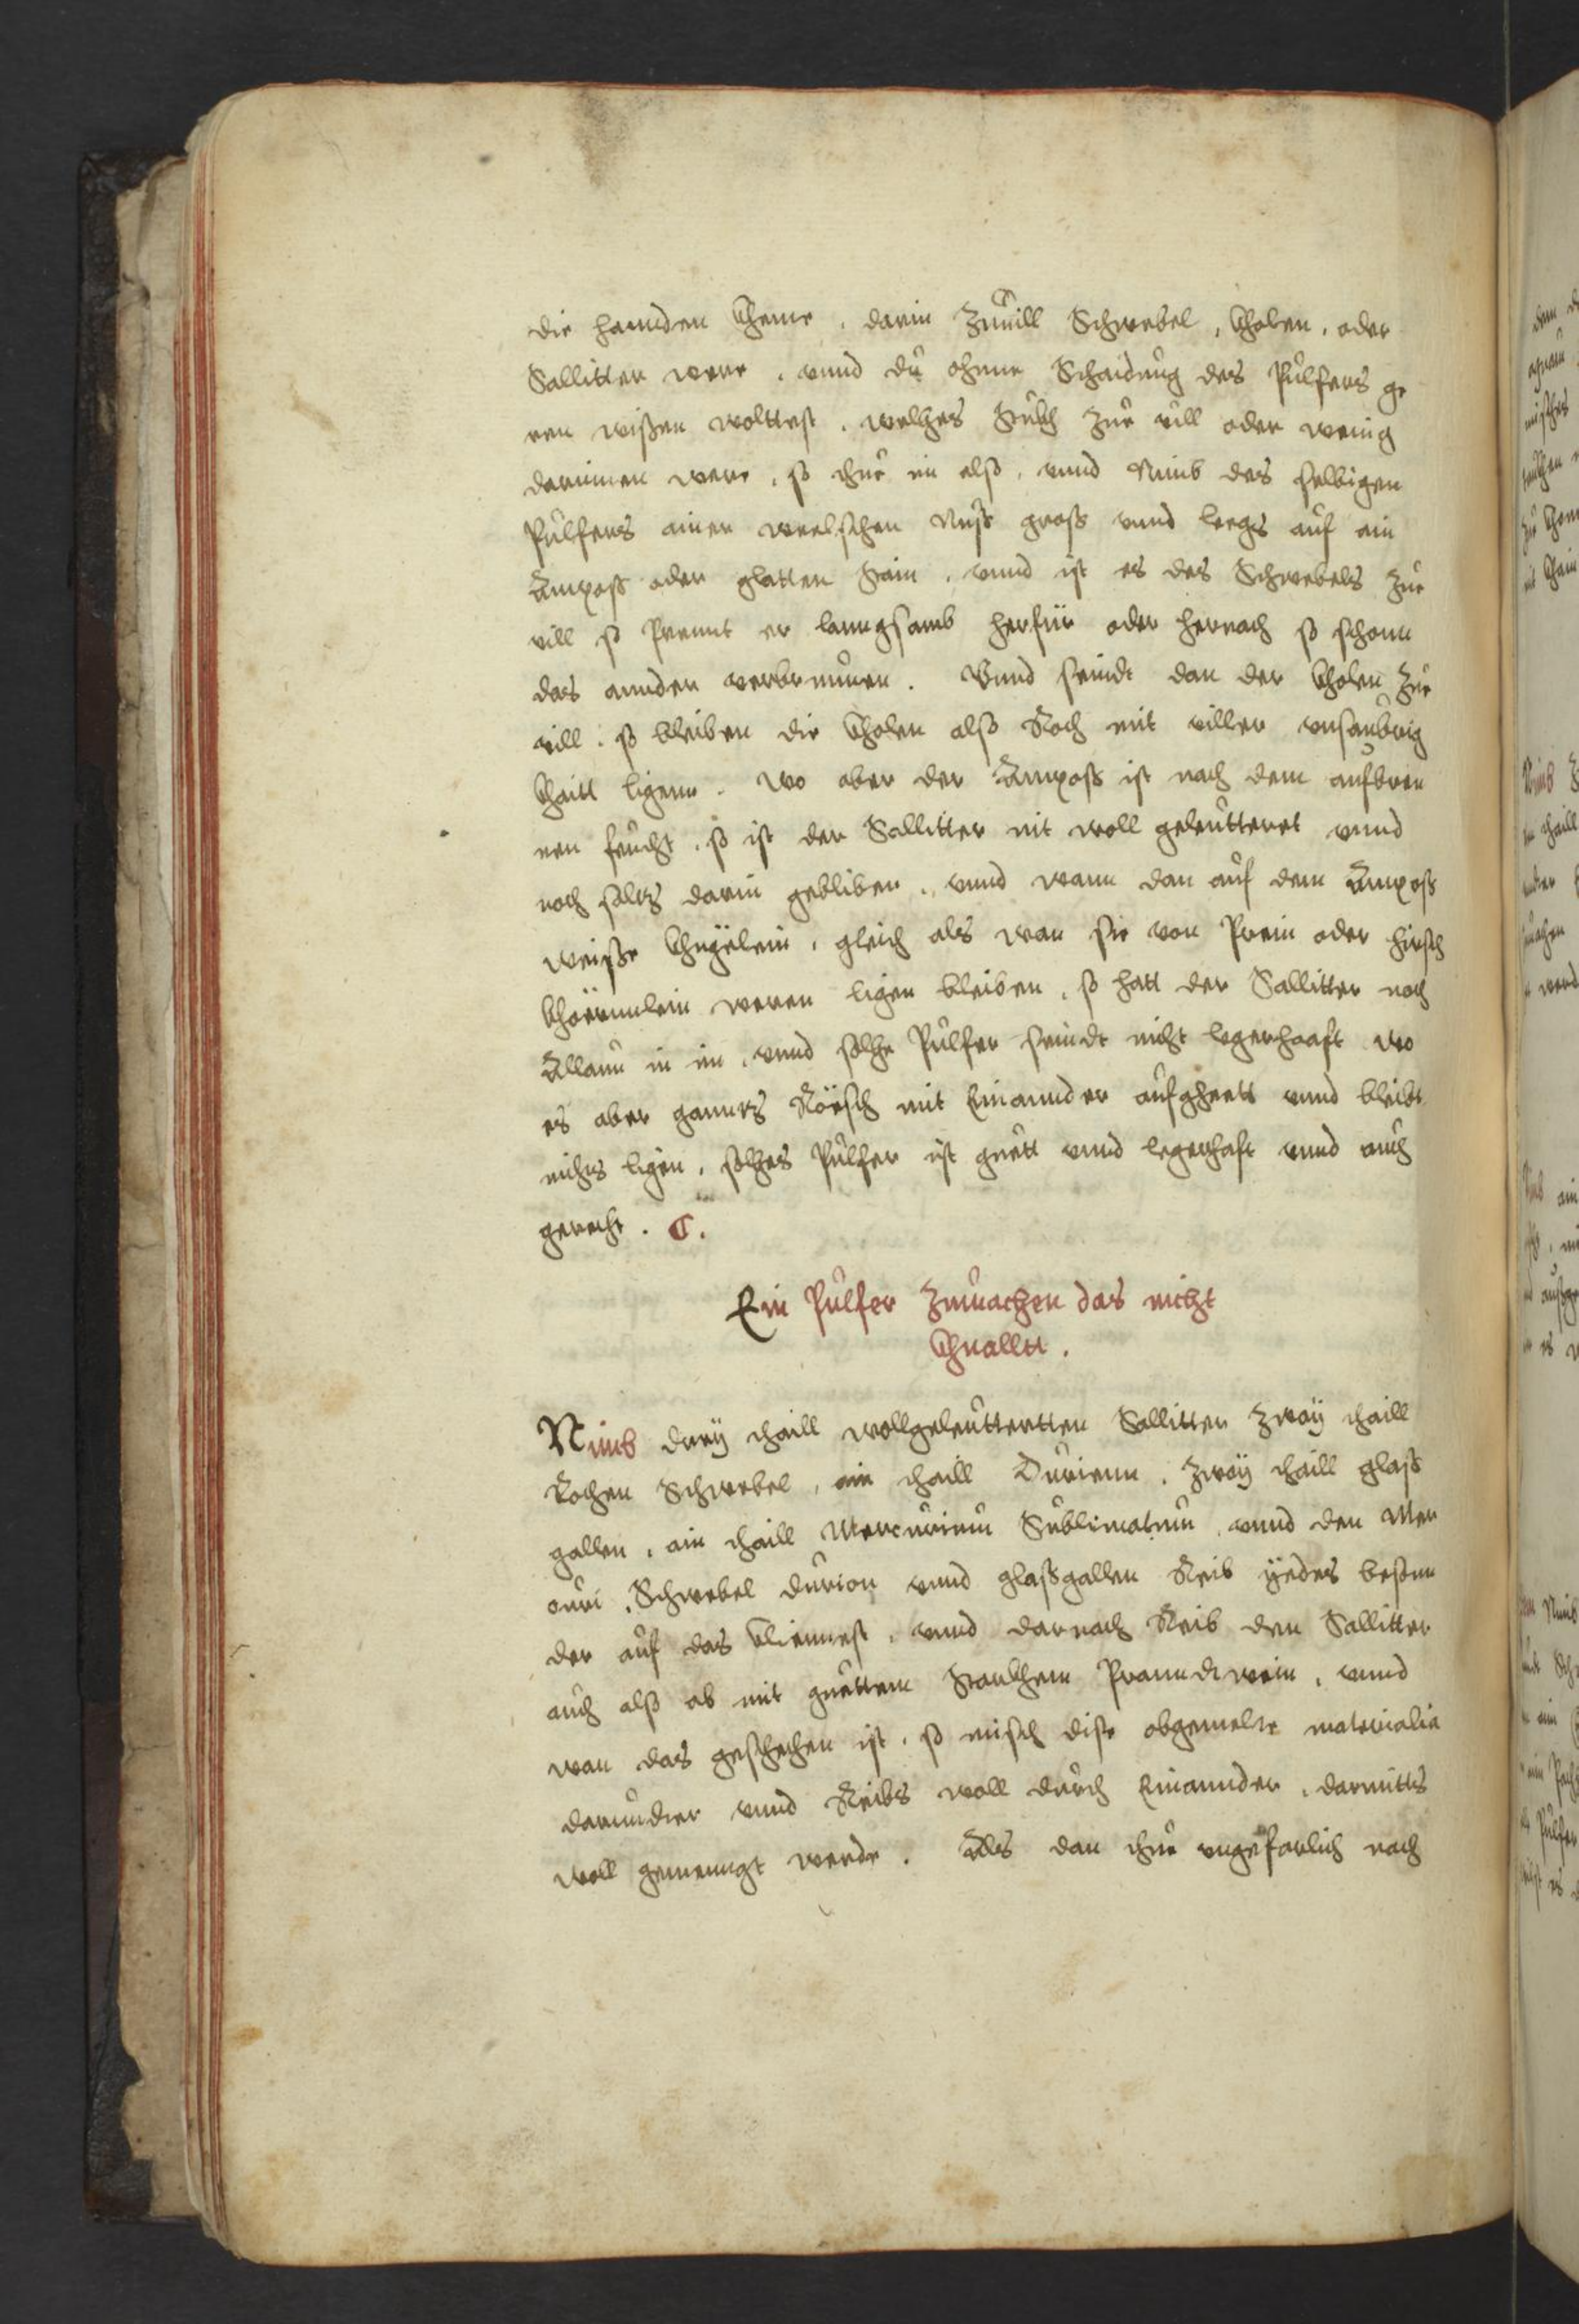 die hannden kheme, darin Zuuill Schwebel, kholen, oder
Sallitter were, vnnd du ohnne Schaidung des Pulfers ge
ren wißen wolttest, welches stukh Zue uill oder wenig
darinnen were, so thue im also, vnnd Nimb des selbigen
Pulfers ainer weelschen Nuß groß vnnd leegs auf ain
Ampoß oder glatten stain, vnnd ist es des Schwebels Zue
uill so Prennt er lanngsamb herfür oder hernach so schonn
das annder verbrunnen. Vnnd seindt dan der kholen Zue
uill, so bleiben die kholen also Roch mit uiller vnsaubrig
khaitt ligenn. Wo aber der Ampoß ist nach dem aufbren
nen feucht, so ist der Sallitter nit woll geleutteret vnnd
noch saltz darin gebliben, vnnd wann dan auf dem Ampoß
weiße khugelein, gleich als wan sie von Prein oder hirsch
khöernnlein weren ligen bleiben, so hatt der Sallitter noch
Allaun in im, vnnd solche Pulfer seindt nicht legerhaaft wo
es aber ganntz Röesch mit Einannder aufgheett vnnd bleibt
nichts ligen, solches Pulfer ist guett vnnd legerhaft vnnd auch
gerecht. C.
Ein Pulfer Zumachen das nicht
khnalltt.
Nimb drey thaill wollgeleutterttten Sallitter Zway thaill
Rochen Schwebel, ain thaill Durienn, Zway thaill glaß
gallen, ain thaill Mercurium Sublimatum, vnnd den Mer
curi, Schwebel durion vnnd glaßgallen Reib yedes besonn
der auf das klienest, vnnd darnach Reib den Sallitter
auch also ab mit guettem starkhem Pranndtwein, vnnd
wan das geschechen ist, so misch dise obgemelte materialia
darundter vnnd Reibs woll durch Einannder, darmitts
woll gemenngt werde. Als dan thue vngefarlich nach